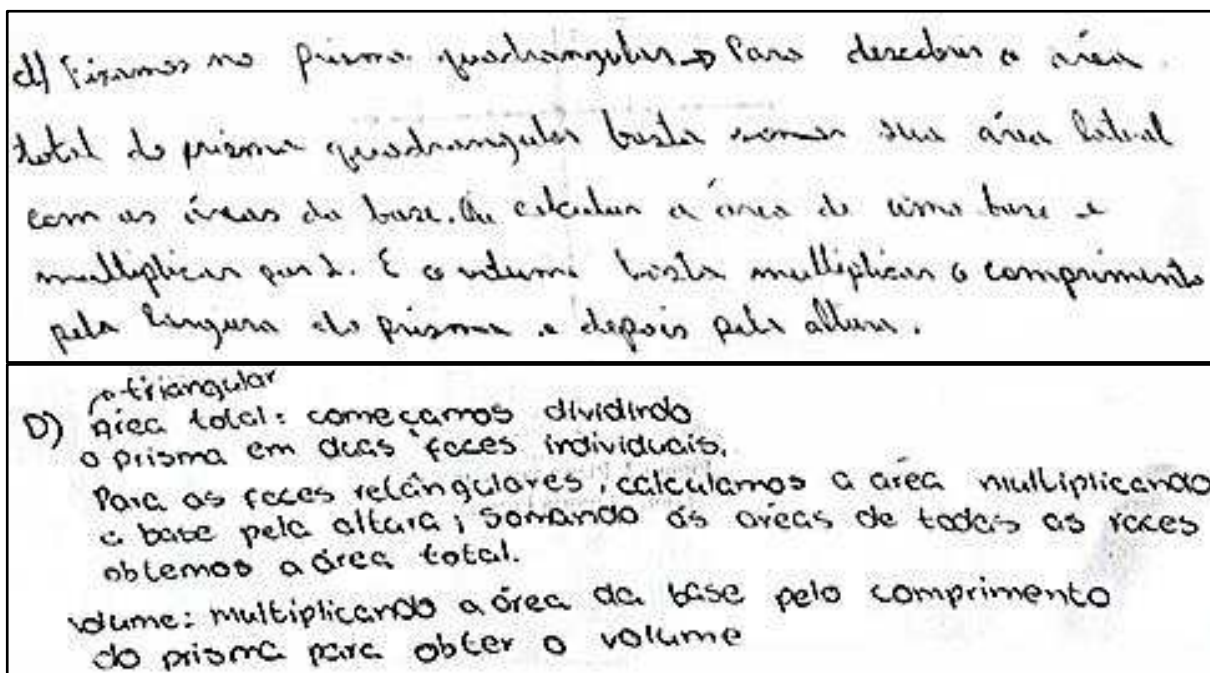 d) Fixamos no prisma quadrangular → Para descobrir a área
total do prisma quadrangular basta somar sua área lateral
com as áreas da base. Ou calcular a área de uma base e
multiplicar por 2. E o volume basta multiplicar o comprimento
pela largura do prisma e depois pela altura.
→ triangular
D) Área total: começamos dividindo
o prisma em duas faces individuais.
Para as faces retângulares, calculamos a área multiplicando
a base pela altura; somando ás áreas de todas as faces
obtemos a área total.
volume: multiplicando a área da base pelo comprimento
do prisma para obter o volume